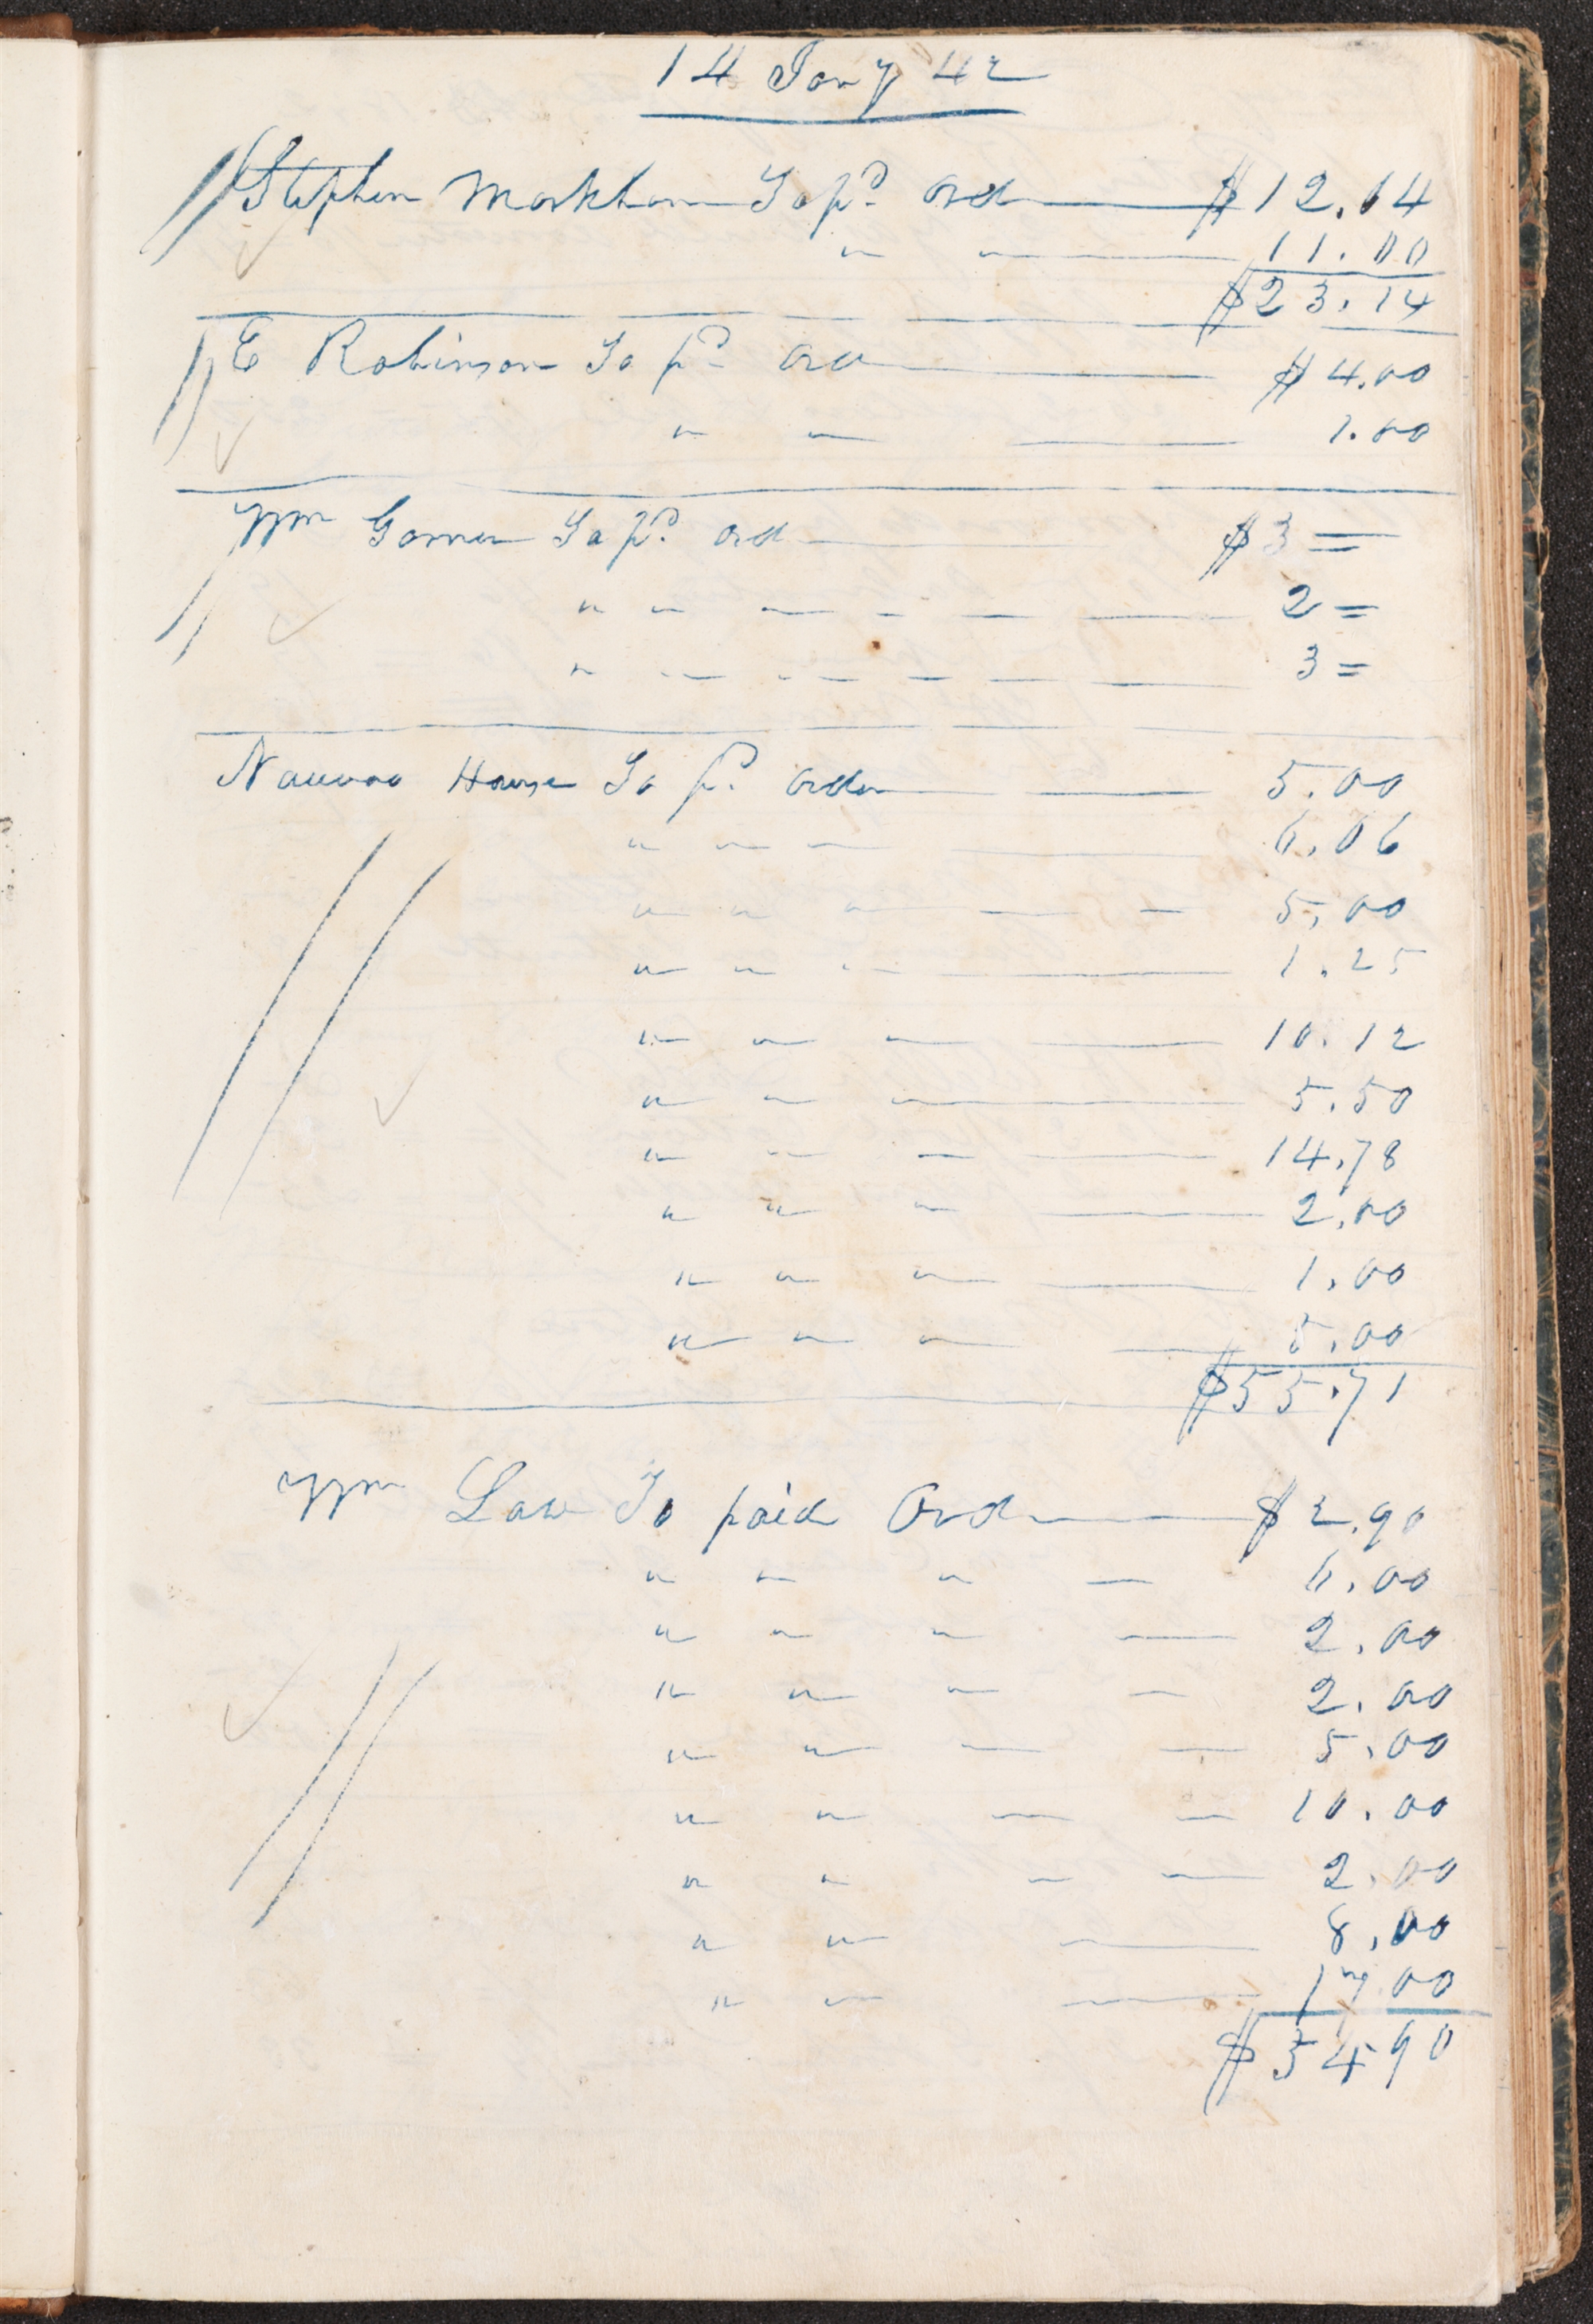 14 Jany 42
Stephen Markham To pd. Ord $12.14
" " 11.00
$23.14
E Robinson To pd. Ord $4.00
" " 1.00
Wm Garner To pd. ord $3=
" " 2=
" " 3=
Nauvoo House To pd. order 5.00
" " " 6.06
" " " 5.00
" " " 1.25
" " " 10.12
" " " 5.50
" " " 14.78
" " " 2.00
" " " 1.00
" " " 5.00
$55.71
Wm Law To paid Ord $2.90
" " " 6.00
" " " 2.00
" " " 2.00
" " " 5.00
" " " 10.00
" " " 2.00
" " 8.00
" " 17 00
$54 90